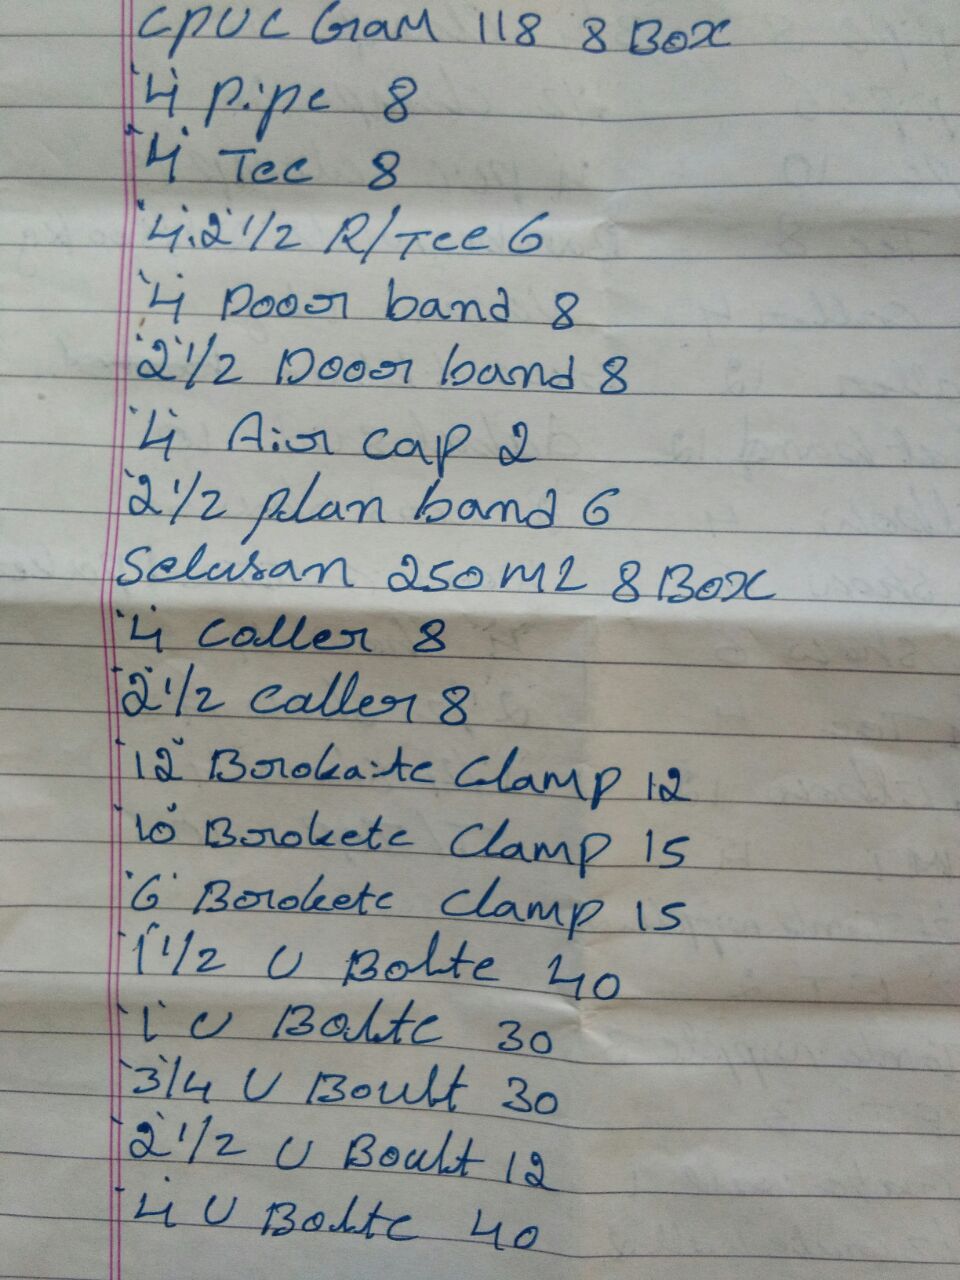 CPVC Gram 118 8 Box
"4" Pipe 8
"4" Tee 8
"4"."2" 1/2 R/Tee 6
"4" Dooor band 8
"2" 1/2 Dooor band 8
"4" Air cap 2
"2 1/2 Plan band 6
Selusan 250 ML 8 Box
"4 Coller 8
"2" 1/2 Caller 8
"12" Brokaite Clamp 12
"10" Brokete Clamp 15
"6" Brokete Clamp 15
"1" 1/2 U Bolte 40
"1" U Bolte 30
"3/4 U Boult 30
"2" 1/2 U Boult 12
"4 U Bolte 40